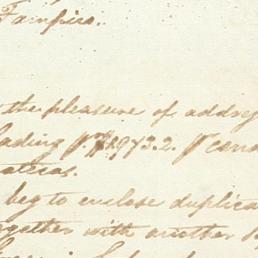 Tampico.
the pleasure of addre
lading p $1973.2. p
atecas.
beg to enclose duplica
ogether with another